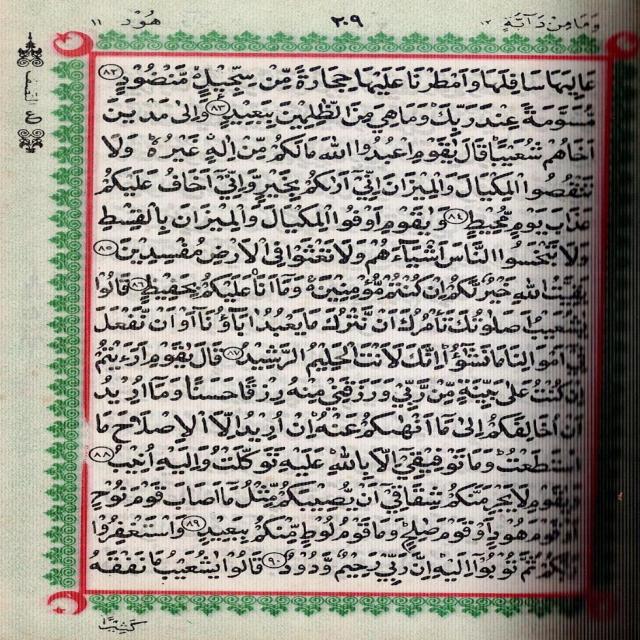 وَمَا مِنْ دَآبَّةٍ ١٢ ٢٠٩ هُوْد ١١
عَالِيَهَا سَافِلَهَا وَاَمْطَرْنَا عَلَيْهَا حِجَارَةً مِّنْ سِجِّيْلٍ مَّنْضُوْدٍ ﴿٨٢﴾
مُّسَوَّمَةً عِنْدَ رَبِّكَ وَمَا هِيَ مِنَ الظّٰلِمِيْنَ بِبَعِيْدٍ ﴿٨٣﴾ وَاِلٰى مَدْيَنَ
اَخَاهُمْ شُعَيْبًا قَالَ يٰقَوْمِ اعْبُدُوا اللّٰهَ مَالَكُمْ مِّنْ اِلٰهٍ غَيْرُهٗ وَلَا
تَنْقُصُوا الْمِكْيَالَ وَالْمِيْزَانَ اِنِّيْٓ اَرٰىكُمْ بِخَيْرٍ وَّاِنِّيْٓ اَخَافُ عَلَيْكُمْ
عَذَابَ يَوْمٍ مُّحِيْطٍ ﴿٨٤﴾ وَيٰقَوْمِ اَوْفُوا الْمِكْيَالَ وَالْمِيْزَانَ بِالْقِسْطِ
وَلَا تَبْخَسُوا النَّاسَ اَشْيَآءَهُمْ وَلَا تَعْثَوْا فِي الْاَرْضِ مُفْسِدِيْنَ ﴿٨٥﴾
بَقِيَّتُ اللّٰهِ خَيْرٌ لَّكُمْ اِنْ كُنْتُمْ مُّؤْمِنِيْنَ ۚ وَمَآ اَنَا عَلَيْكُمْ بِحَفِيْظٍ ﴿٨٦﴾ قَالُوْا
يٰشُعَيْبُ اَصَلٰوتُكَ تَاْمُرُكَ اَنْ نَّتْرُكَ مَا يَعْبُدُ اٰبَآؤُنَآ اَوْ اَنْ نَّفْعَلَ
فِيْٓ اَمْوَالِنَا مَا نَشٰٓؤُا اِنَّكَ لَاَنْتَ الْحَلِيْمُ الرَّشِيْدُ ﴿٨٧﴾ قَالَ يٰقَوْمِ اَرَءَيْتُمْ
اِنْ كُنْتُ عَلٰى بَيِّنَةٍ مِّنْ رَّبِّيْ وَرَزَقَنِيْ مِنْهُ رِزْقًا حَسَنًا وَمَآ اُرِيْدُ
اَنْ اُخَالِفَكُمْ اِلٰى مَآ اَنْهٰىكُمْ عَنْهُ اِنْ اُرِيْدُ اِلَّا الْاِصْلَاحَ مَا
اسْتَطَعْتُ وَمَا تَوْفِيْقِيْٓ اِلَّا بِاللّٰهِ عَلَيْهِ تَوَكَّلْتُ وَاِلَيْهِ اُنِيْبُ ﴿٨٨﴾
وَيٰقَوْمِ لَا يَجْرِمَنَّكُمْ شِقَاقِيْٓ اَنْ يُّصِيْبَكُمْ مِّثْلُ مَآ اَصَابَ قَوْمَ نُوْحٍ
اَوْ قَوْمَ هُوْدٍ اَوْ قَوْمَ صٰلِحٍ وَمَا قَوْمُ لُوْطٍ مِّنْكُمْ بِبَعِيْدٍ ﴿٨٩﴾ وَاسْتَغْفِرُوْا
رَبَّكُمْ ثُمَّ تُوْبُوْٓا اِلَيْهِ اِنَّ رَبِّيْ رَحِيْمٌ وَّدُوْدٌ ﴿٩٠﴾ قَالُوْا يٰشُعَيْبُ مَا نَفْقَهُ
كَثِيْرًا